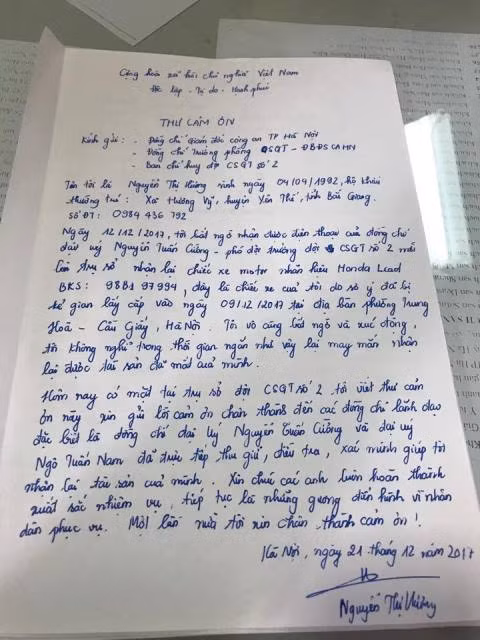 Cộng hoà xã hội chủ nghĩa Việt Nam
Độc lập - Tự do - Hạnh phúc
THƯ CẢM ƠN
Kính gửi: - Đồng chí Giám đốc công an TP Hà Nội
- Đồng chí Trưởng phòng CSGT - ĐBĐS CAHN
- Ban chỉ huy đội CSGT số 2
Tên tôi là Nguyễn Thị Hương sinh ngày 04/04/1992, hộ khẩu
thường trú: Xã Hương Vỹ, huyện Yên Thế, tỉnh Bắc Giang.
Số ĐT: 0984 436 792
Ngày 12/12/2017, tôi bất ngờ nhận được điện thoại của đồng chí
đại uý Nguyễn Tuấn Cường - phó đội trưởng đội CSGT số 2 mời
lên trụ sở nhận lại chiếc xe motor nhãn hiệu Honda Lead
BKS: 98B1 97994, đây là chiếc xe của tôi do sơ ý đã bị
kẻ gian lấy cắp vào ngày 09/12/2017 tại địa bàn phường Trung
Hoà - Cầu Giấy, Hà Nội. Tôi vô cùng bất ngờ và xúc động,
tôi không nghĩ trong thời gian ngắn như vậy lại may mắn nhận
lại được tài sản đã mất của mình.
Hôm nay có mặt tại trụ sở đội CSGT số 2 tôi viết thư cảm
ơn này xin gửi lời cảm ơn chân thành đến các đồng chí lãnh đạo
đặc biệt là đồng chí đại uý Nguyễn Tuấn Cường và đại uý
Ngô Tuấn Nam đã trực tiếp thu giữ, điều tra, xác minh giúp tôi
nhận lại tài sản của mình. Xin chúc các anh luôn hoàn thành
xuất sắc nhiệm vụ, tiếp tục là những gương điển hình vì nhân
dân phục vụ. Một lần nữa tôi xin chân thành cảm ơn!
Hà Nội, ngày 21 tháng 12 năm 2017
Nguyễn Thị Hương